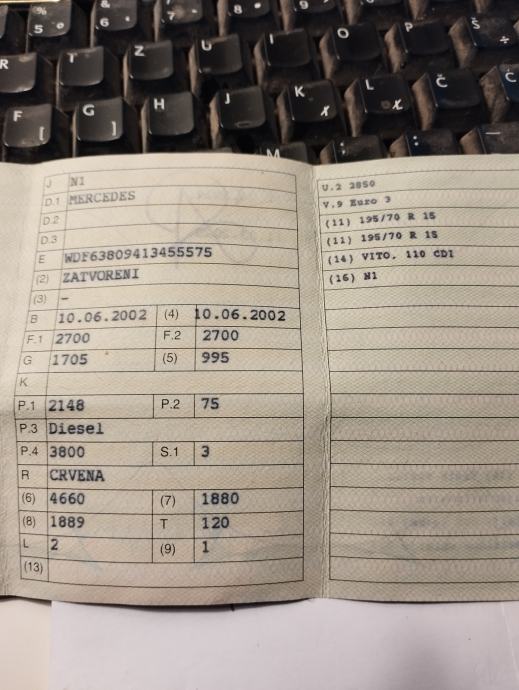 % 5
& 6
/ 7
8
9
R
T
Z
U
I
O
P
Š ÷
F [
G ]
H
J
K
L
Č
M
J N1
D.1 MERCEDES
D.2
D.3
E WDF63809413455575
(2) ZATVORENI
(3) –
B 10.06.2002 (4) 10.06.2002
F.1 2700 F.2 2700
G 1705 (5) 995
K
P.1 2148 P.2 75
P.3 Diesel
P.4 3800 S.1 3
R CRVENA
(6) 4660 (7) 1880
(8) 1889 T 120
L 2 (9) 1
(13)
U.2 2850
V.9 Euro 3
(11) 195/70 R 15
(11) 195/70 R 15
(14) VITO. 110 CDI
(16) N1